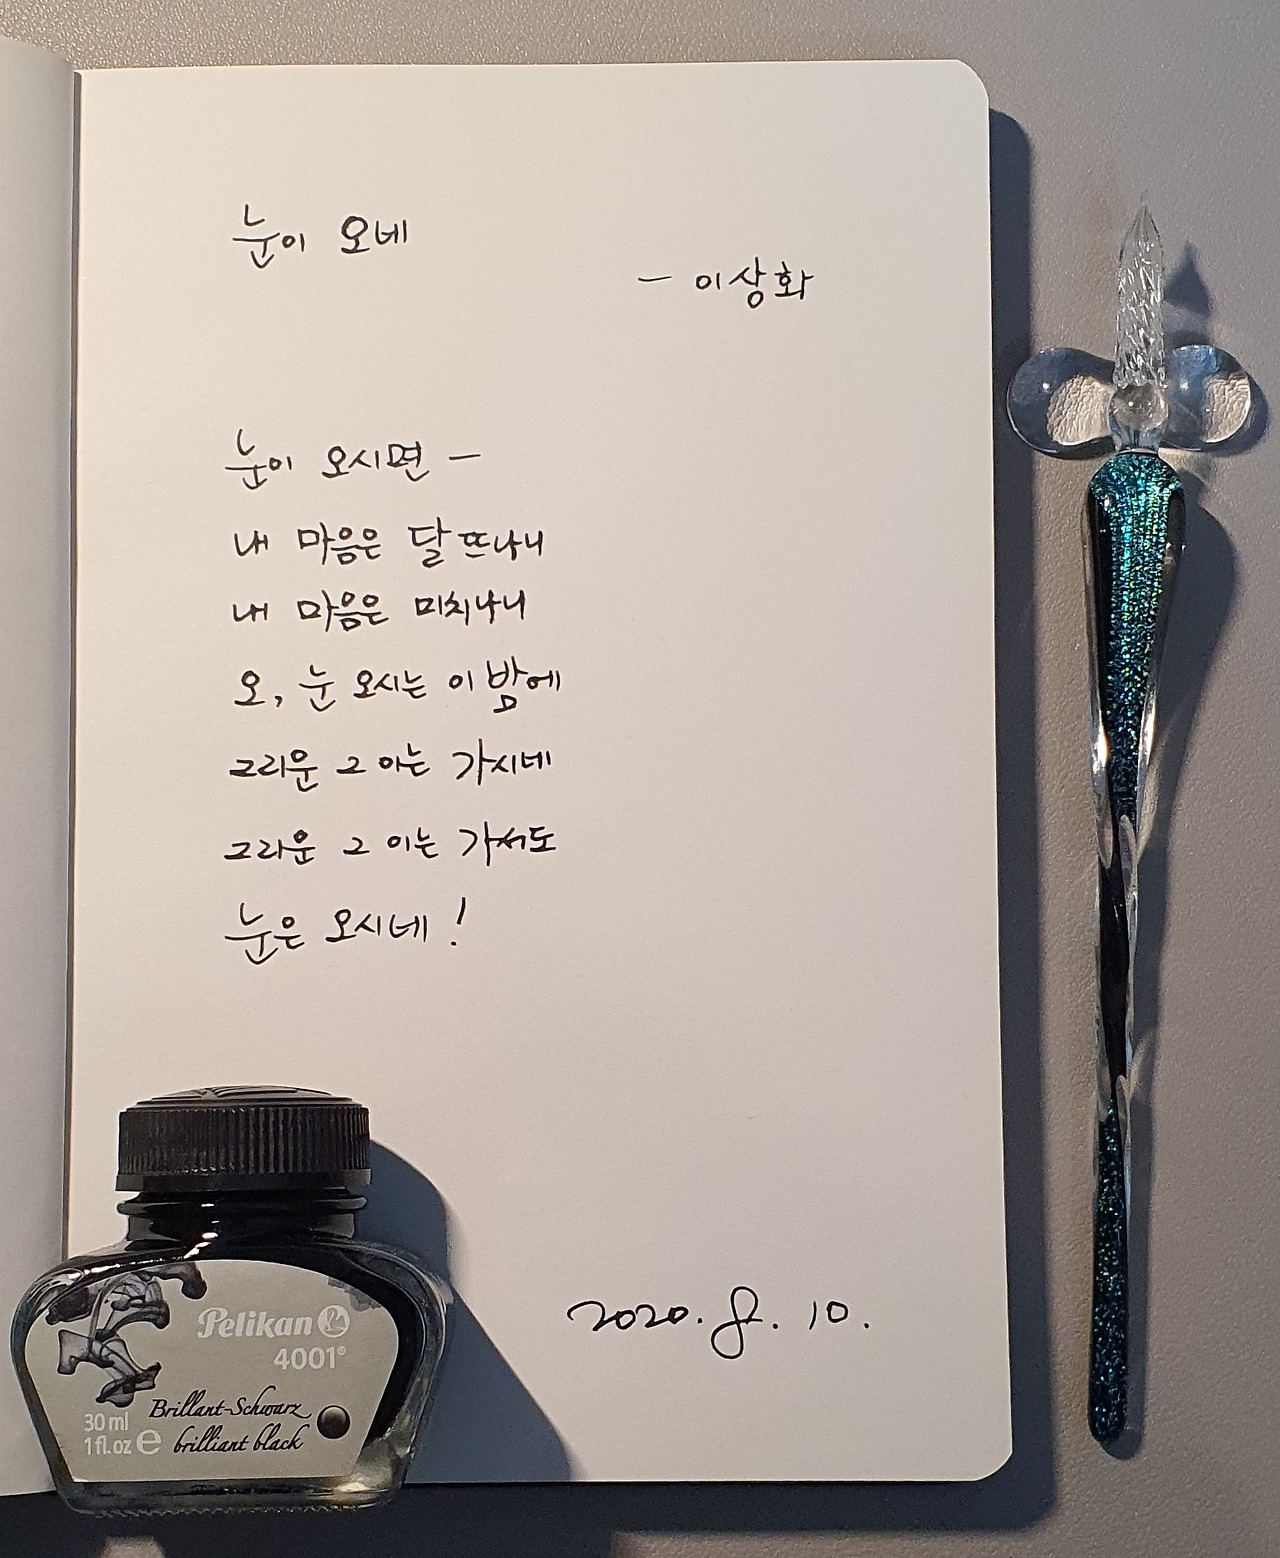 눈이 오네
- 이상화
눈이 오시면 -
내 마음은 달 뜨나니
내 마음은 미치나니
오, 눈 오시는 이 밤에
그리운 그 이는 가시네
그리운 그 이는 가서도
눈은 오시네!
2020. 8. 10.
Pelikan
4001®
Brillant-Schwarz
brilliant black
30 ml
1 fl.oz e